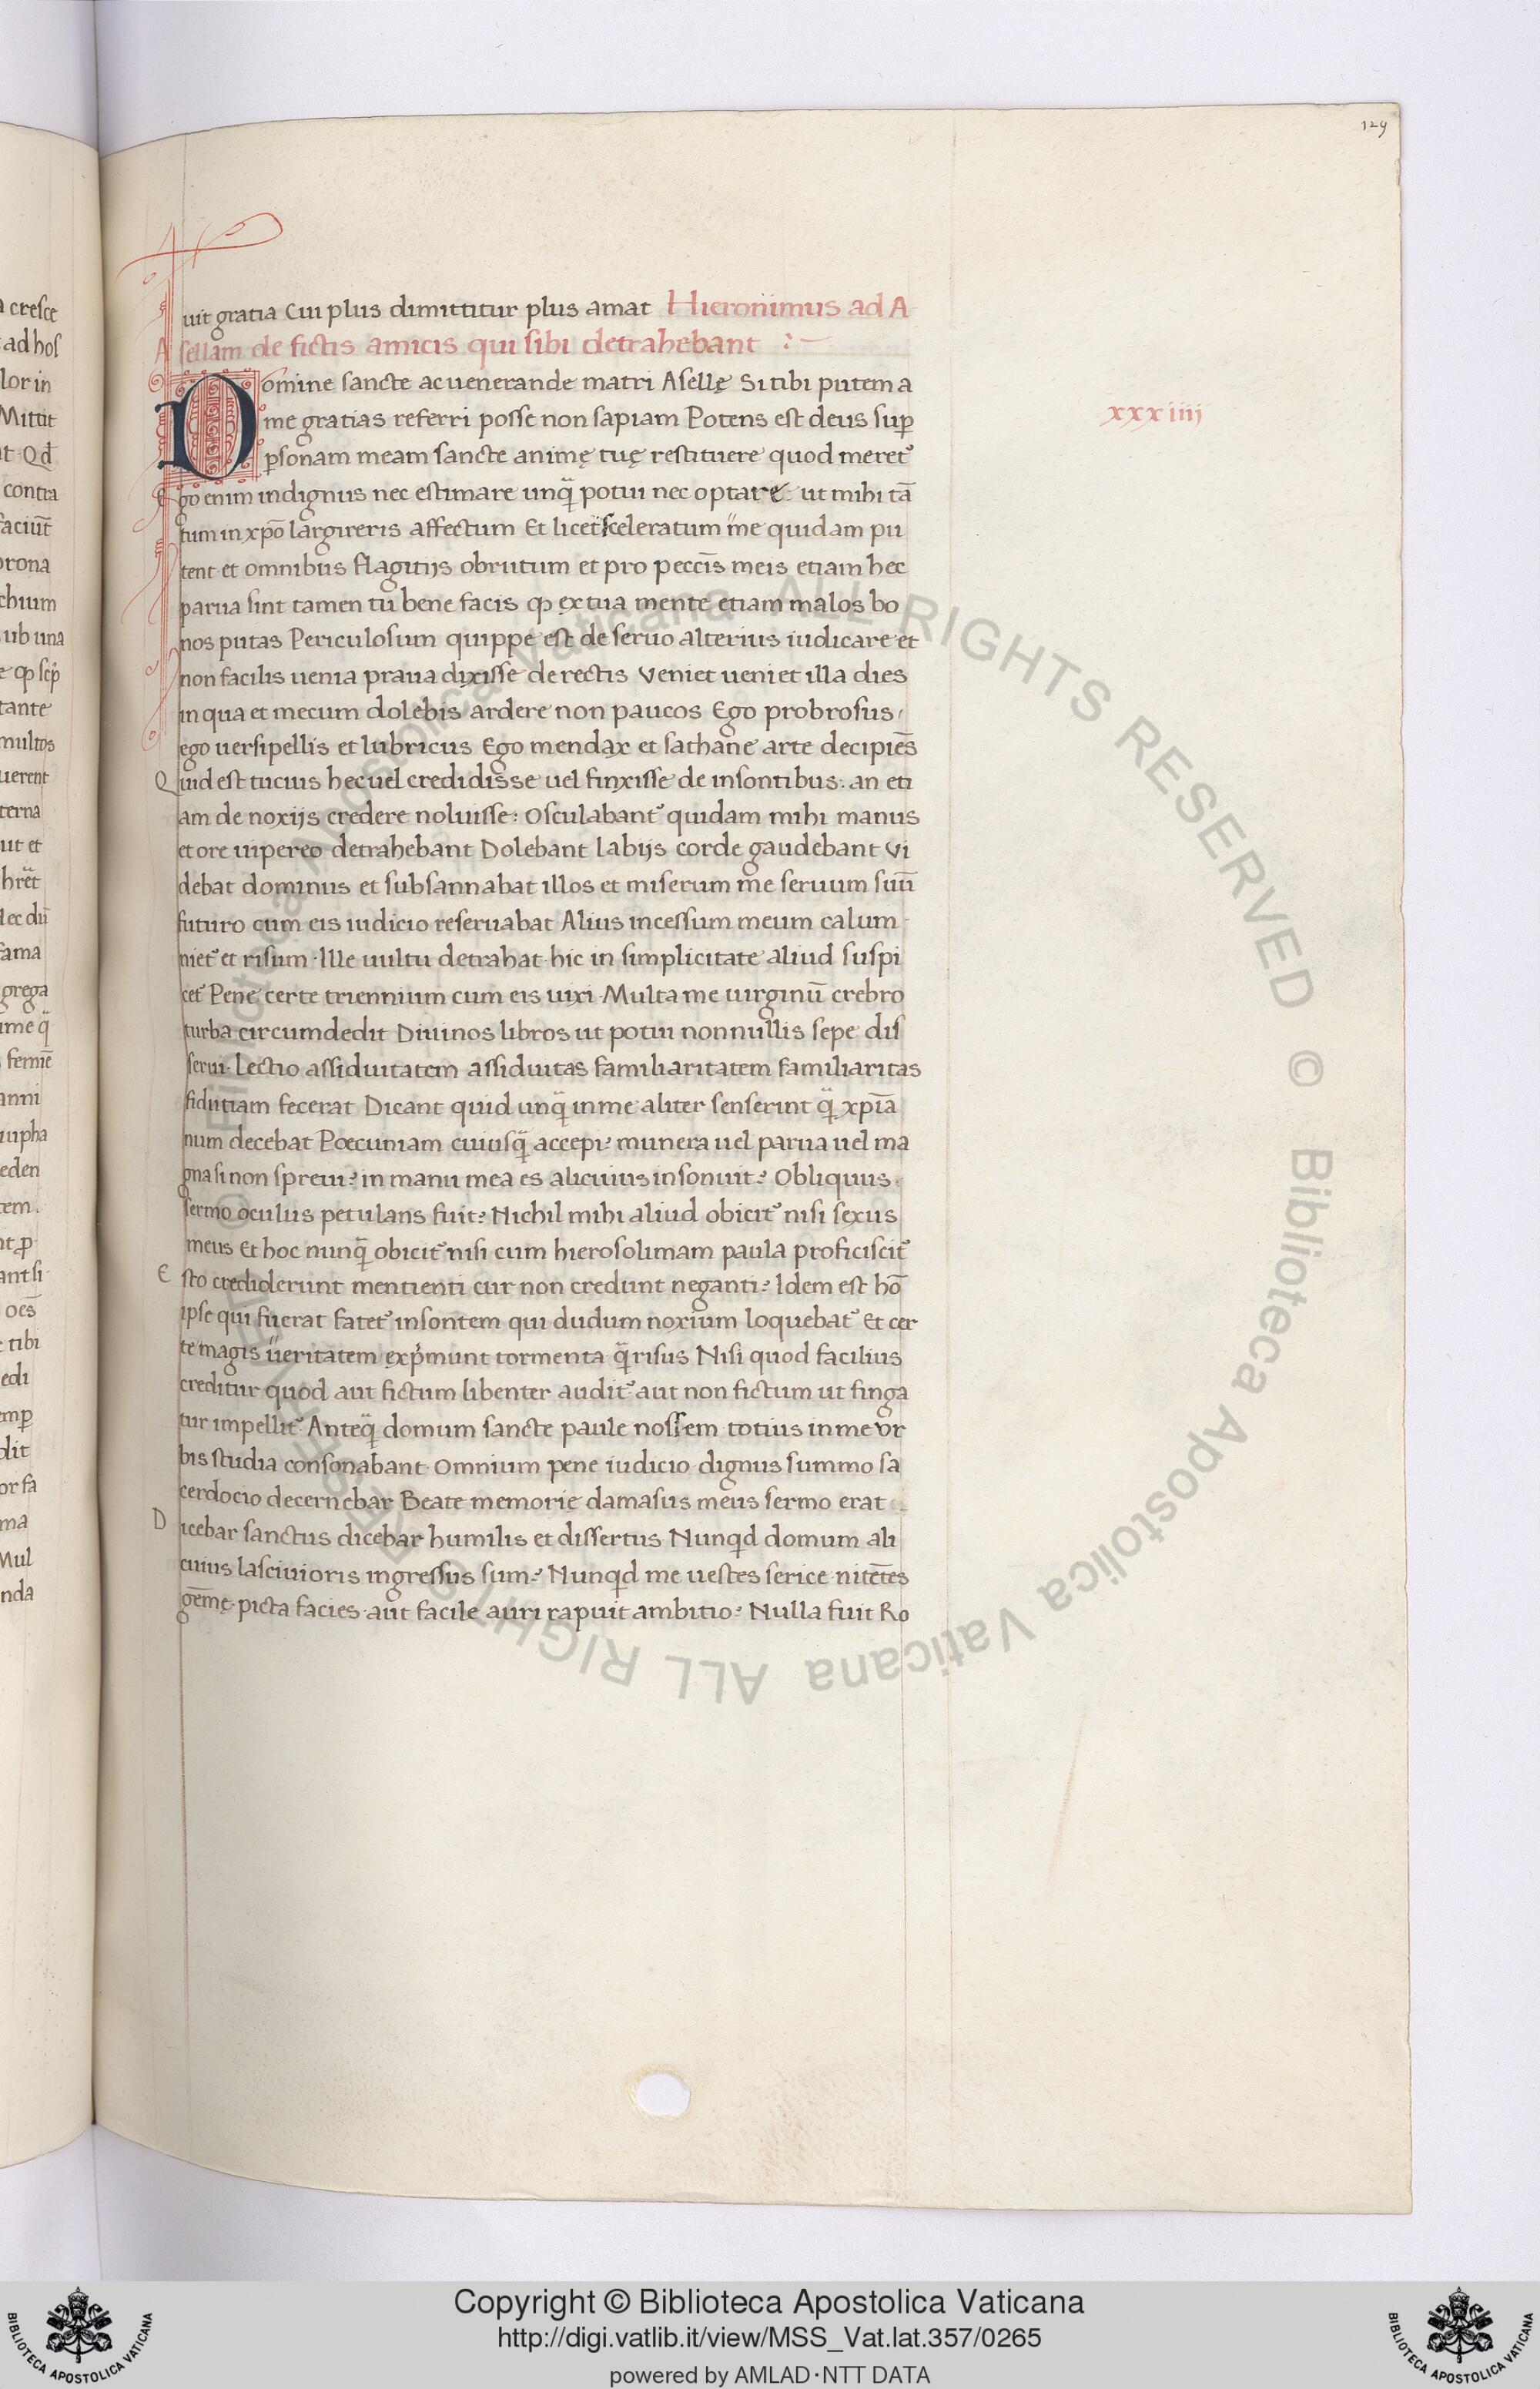 129
uit gratia Cui plus dimittitur plus amat Hieronimus ad A
sellam de fictis amicis qui sibi detrahebant :~
Domine sancte ac uenerande matri Asellę Si tibi putem a
me gratias referri posse non sapiam Potens est deus sup̲
p̲sonam meam sancte animę tuę restituere quod meret᷒
Ego enim indignus nec estimare unq̃ potui nec optare· ut mihi tā
tum in xp̄o largireris affectum Et licet sceleratum me quidam pu
tent et omnibus flagitijs obrutum et pro pecc̄is meis etiam hec
parua sint tamen tu bene facis ꝙ ex tua mente etiam malos bo
nos putas Periculosum quippe est de seruo alterius iudicare et
non facilis uenia praua dixisse de rectis Veniet ueniet illa dies
in qua et mecum dolebis ardere non paucos Ego probrosus/
ego uersipellis et lubricus Ego mendax et sathane arte decipiēs
Quid est tucius hec uel credidisse uel finxisse de insontibus: an eti
am de noxijs credere noluisse: Osculabant᷒ quidam mihi manus
et ore uipereo detrahebant Dolebant labijs corde gaudebant Vi
debat dominus et subsannabat illos et miserum me seruum suū
futuro cum eis iudicio reseruabat Alius incessum meum calum
niet᷒ et risum· Ille uultu detrahat hic in simplicitate aliud suspi
cet᷒ Pene certe triennium cum eis uixi· Multa me uirginū crebro
turba circumdedit Diuinos libros ut potui nonnullis sepe dis
serui· Lectio assiduitatem assiduitas familiaritatem familiaritas
fidutiam fecerat Dicant quid unq̃ in me aliter senserint q̃ xp̄ia
num decebat Poecuniam cuiusq̃ accepi? munera uel parua uel ma
gna si non spreui? in manu mea es alicuius insonuit? Obliquus
sermo oculus petulans fuit? Nichil mihi aliud obicit᷒ nisi sexus
meus Et hoc nunq̃ obicit᷒ nisi cum hierosolimam paula proficiscit᷒
Esto crediderunt mentienti cur non credunt neganti? Idem est hō
ipse qui fuerat fatet᷒ insontem qui dudum noxium loquebat᷒ Et cer
te magis ueritatem exp̍munt tormenta q̃ risus Nisi quod facilius
creditur quod aut fictum libenter audit᷒ aut non fictum ut finga
tur impellit᷒ Anteq̃ domum sancte paule nossem totius in me vr
bis studia consonabant Omnium pene iudicio dignus summo sa
cerdocio decernebar Beate memorię damasus meus sermo erat
Dicebar sanctus dicebar humilis et dissertus Nunqd domum ali
cuius lasciuioris ingressus sum? Nunqd me uestes serice nitētes
gēmę picta facies aut facile auri rapuit ambitio? Nulla fuit Ro
xxxiiij
Copyright © Biblioteca Apostolica Vaticana
http://digi.vatlib.it/view/MSS_Vat.lat.357/0265
powered by AMLAD·NTT DATA
BIBLIOTECA APOSTOLICA VATICANA
BIBLIOTECA APOSTOLICA VATICANA